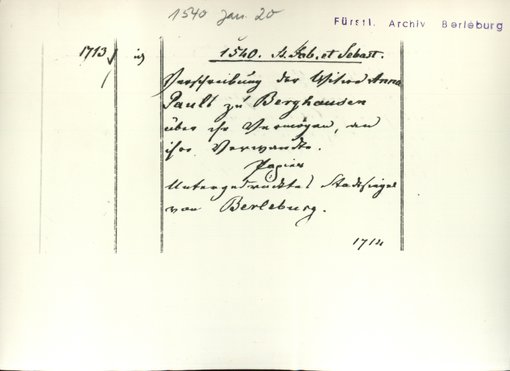 1540 Jan. 20
Fürstl. Archiv Berleburg
1713
1540. St. Fab. et Sebast.
Verschreibung der Witwe Anna
Pault zu Berghausen
über ihr Vermögen, an
ihre Verwandte.
Papier
Untergedrücktes Stadtsiegel
von Berleburg.
1714